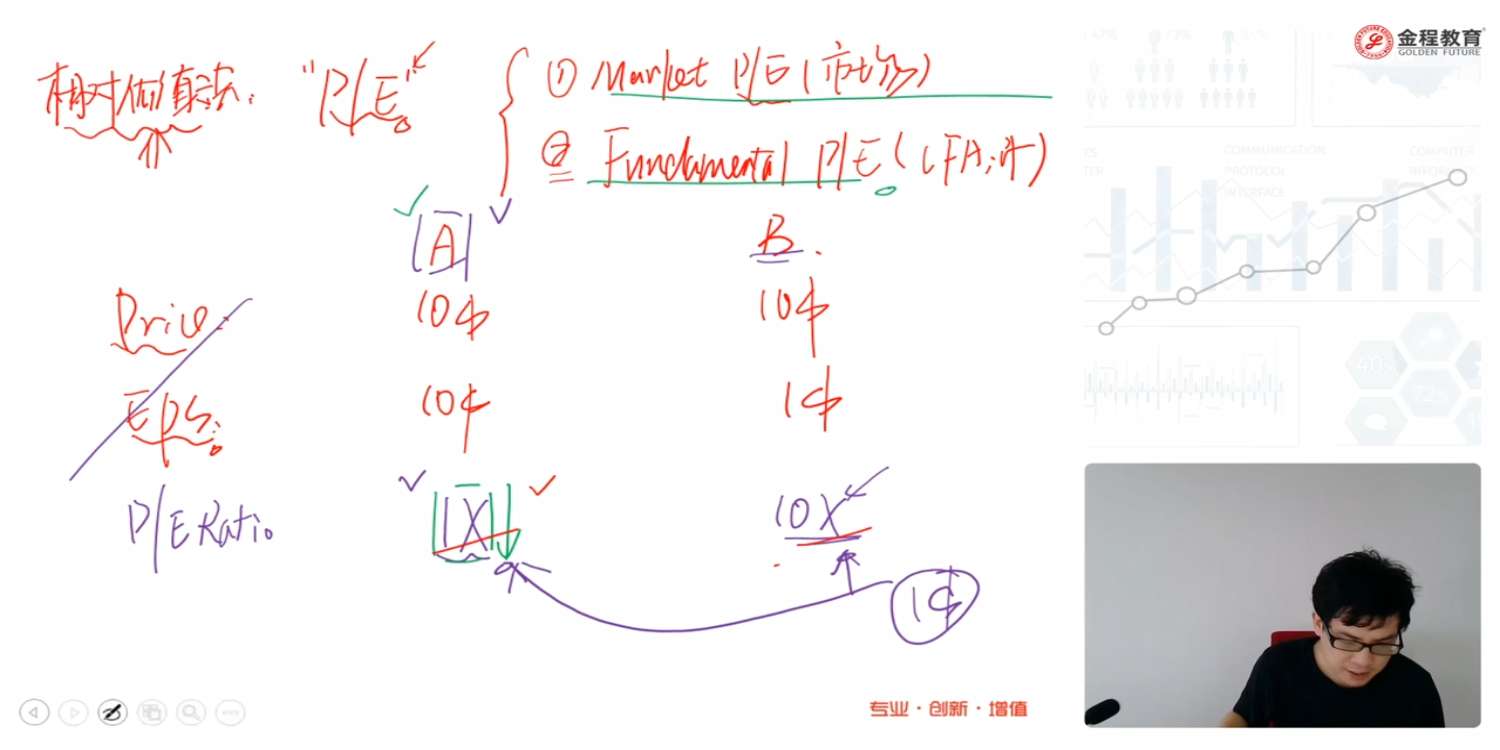 金程教育
GOLDEN FUTURE
相对估值法: "P/E" ① Market P/E (市场)
② Fundamental P/E (CFA
A B.
Price: 10$ 10$
EPS: 10$ 1$
P/E Ratio 1X 10X
1$
COMMUNICATION
PROTOCOL
INTERFACE
COMPUTER
40%
72%
专业·创新·增值